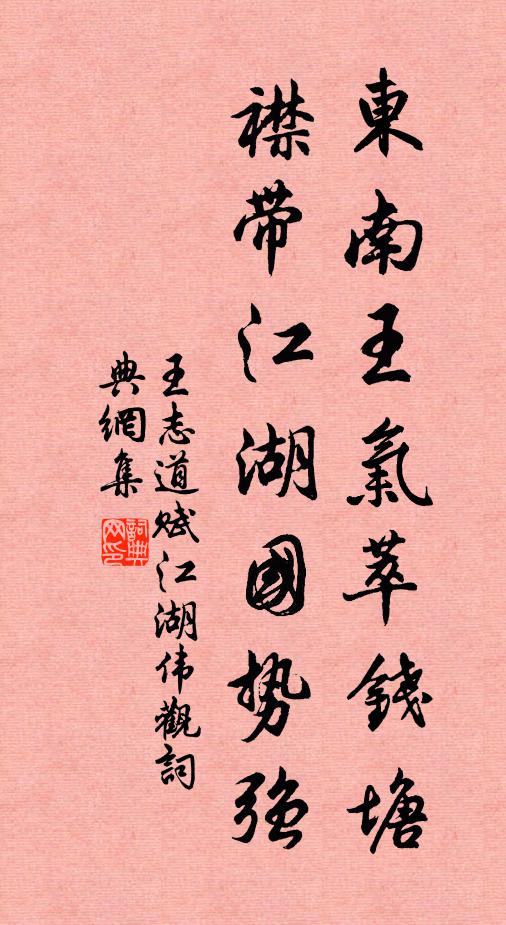 東南王氣萃錢塘
襟帶江湖國勢強
王志道賦江湖伟觀詞
典網集
詞典网印